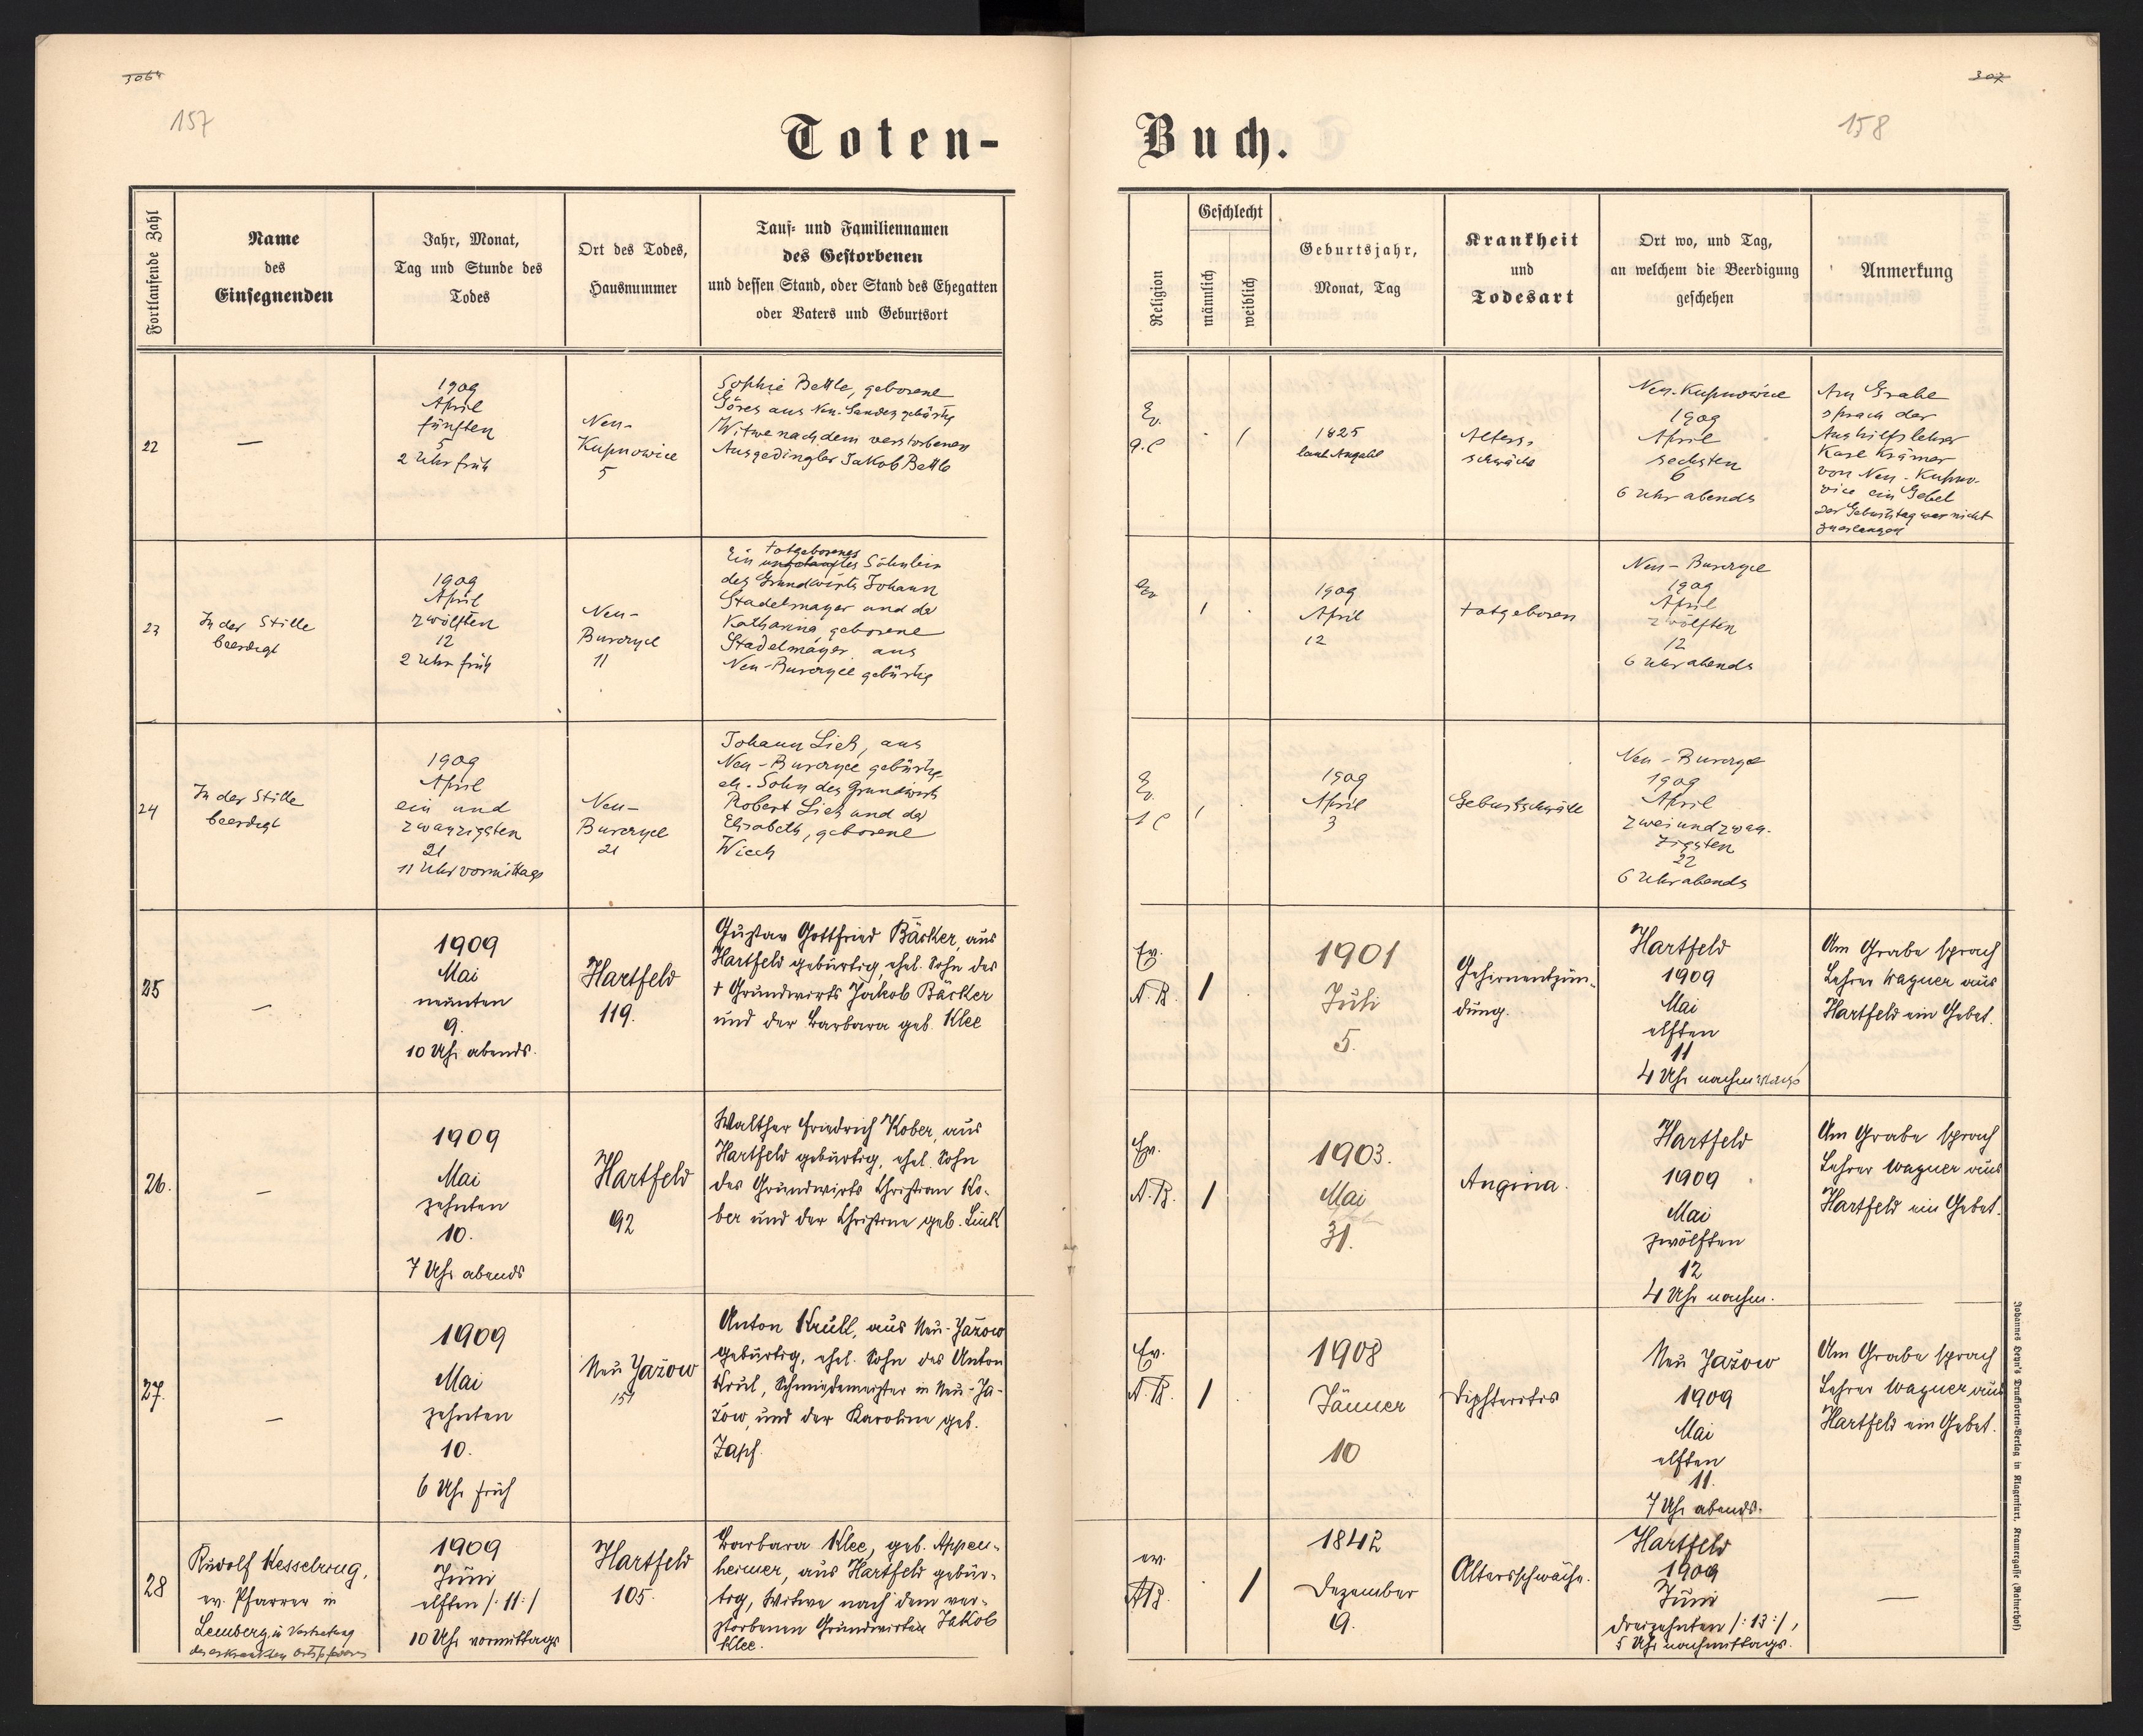 306
157
Toten-
Fortlaufende Zahl
Name
des
Einsegnenden
Jahr, Monat,
Tag und Stunde des
Todes
Ort des Todes,
Hausnummer
Tauf- und Familiennamen
des Gestorbenen
und dessen Stand, oder Stand des Ehegatten
oder Vaters und Geburtsort
22
—
1909
April
fünften
5
2 Uhr früh
Neu-
Kupnowice
5
Sophie Bettle, geborene
aus Neu-Sandez gebürtig
Witwe nach dem verstorbenen
Ausgedingler Jakob Bettle
23
In der Stille
beerdigt
1909
April
zwölften
12
2 Uhr früh
Neu-
Burczyce
11
totgeborenes
Ein ungetauftes Söhnlein
des Grundwirts Johann
Stadelmayer und der
Katharina, geborene
Stadelmayer, aus
Neu-Burczyce gebürtig
24
In der Stille
beerdigt
1909
April
ein und
zwanzigsten
21
11 Uhr vormittags
Neu-
Burczyce
21
Johann Lich, aus
Neu-Burczyce gebürtig
eh. Sohn des Grundwirts
Robert Lich und der
Elisabeth, geborene
25
—
1909
Mai
neunten
9.
10 Uhr abends.
Hartfeld
119.
Gustav Gottfried Bäcker, aus
Hartfeld gebürtig, ehel. Sohn des
† Grundwirts Jakob Bäcker
und der Barbara geb. Klee
26.
—
1909
Mai
zehnten
10.
7 Uhr abends
Hartfeld
92
Walther Friedrich Kober, aus
Hartfeld gebürtig, ehel. Sohn
des Grundwirts Christian Ko-
ber und der Christine geb. Link
27.
—
1909
Mai
zehnten
10.
6 Uhr früh
Neu Jażow
Anton Krull, aus Neu-Jażow
gebürtig, ehel. Sohn des Anton
Krul, Schmiedemeister in Neu-Ja-
żow, und der Karoline geb.
Zapf.
28
Rudolf Kesselring,
ev. Pfarrer in
Lemberg, in Vertretung
des erkrankten Ortspfarrers
1909
Juni
elften /: 11 :/
10 Uhr vormittags
Hartfeld
105.
Barbara Klee, geb. Appen-
heimer, aus Hartfeld gebür-
tig, Witwe nach dem ver-
storbenen Grundwirten Jakob
Klee.
307
158
Buch.
Religion
Geschlecht
männlich
weiblich
Geburtsjahr,
Monat, Tag
Krankheit
und
Todesart
Ort wo, und Tag,
an welchem die Beerdigung
geschehen
Anmerkung
Ev.
/
1825
laut Angabe
Alters-
schwäche
Neu-Kupnowice
1909
April
sechsten
6
6 Uhr abends
Am Grabe
sprach der
Aushilfslehrer
Karl Krämer
von Neu-Kupno-
wice ein Gebet
Der Geburtstag war nicht
zu erlangen
Ev
/
1909
April
12
totgeboren
Neu-Burczyce
1909
April
zwölften
12
6 Uhr abends
Ev.
/
1909
April
3
Neu-Burczyce
1909
April
zweiundzwan-
zigsten
22
6 Uhr abends
Ev.
A. B.
/
1901
Juli
5.
Gehirnentzün-
dung.
Hartfeld
1909
Mai
elften
11
4 Uhr nachmittags
Am Grabe sprach
Lehrer Wagner aus
Hartfeld ein Gebet.
Ev.
A. B.
/
1903.
Mai
31.
Angina.
Hartfeld
1909
Mai
zwölften
12
4 Uhr nachm.
Am Grabe sprach
Lehrer Wagner aus
Hartfeld ein Gebet.
Ev.
A. B.
/
1908
Jänner
10
Diphteritis
Neu Jażow
1909
Mai
elften
11.
7 Uhr abends.
Am Grabe sprach
Lehrer Wagner aus
Hartfeld ein Gebet.
ev.
AB.
/
1842
Dezember
9.
Altersschwäche.
Hartfeld
1909
Juni
dreizehnten /: 13 :/,
5 Uhr nachmittags.
—
Johannes Heyn's Drucksorten-Verlag in Klagenfurt, Kramergasse (Rainerhof)